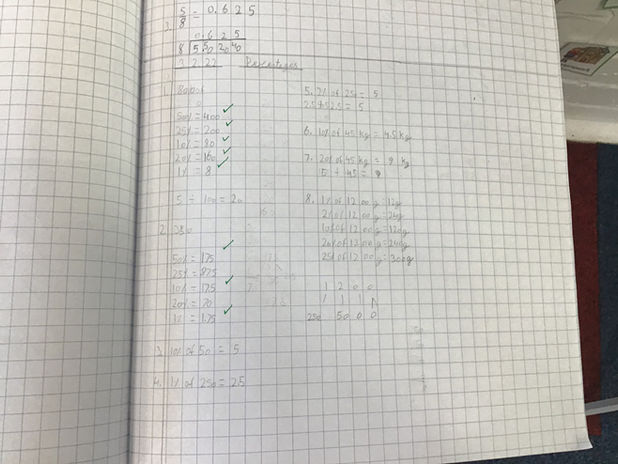 5/8 = 0.625
0.6 2 5
8 5.50 20 40
Percentages
1. 800
50% = 400
25% = 200
10% = 80
20% = 160
1% = 8
5 ÷ 100 = 20
2. 350
50% = 175
25% = 875
10% = 175
20% = 70
1% = 175
3. 10% of 50 = 5
4. 1% of 250 = 25
5. 2% of 250 = 5
6. 10% of 45 kg = 4.5 kg
7. 20% of 45 kg = 9 kg
5 ÷ 45 = 9
8. 1% of 1200 g = 12g
2% of 1200 g = 24g
10% of 1200 g = 120g
20% of 1200 g = 240g
25% of 1200 g = 300g
1 2 0 0
250 5 0 0 0